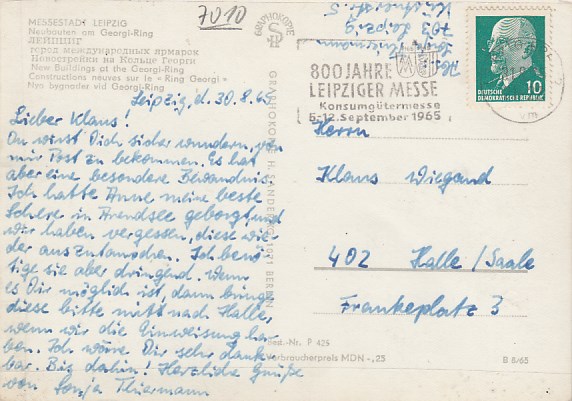 7010
MESSESTADT LEIPZIG
Neubauten am Georgi-Ring
ЛЕЙПЦИГ
город международных ярмарок
Новостройки на Кольце Георги
New Buildings at the Georgi-Ring
Constructions neuves sur le Ring Georgi
Nya bygnader vid Georgi-Ring
Leipzig, d. 30.8.65
Lieber Klaus!
Du wirst Dich sicher wundern, von
mir Post zu bekommen. Es hat
aber eine besondere Bewandnis.
Ich hatte Anne meine beste
Schere in Arendsee geborgt, und
wir haben vergessen, diese wie-
der auszutauschen. Ich benö-
tige sie aber dringend. Wenn
es Dir möglich ist, dann bringe
diese bitte mit nach Halle,
wenn wir die Einweisung ha-
ben. Ich wäre Dir sehr dank-
bar. Bis dahin! Herzliche Grüße
von Sonja Thiermann
GRAPHOKOPIE
GRAPHOKOPIE H. SANDER KG, 1071 BERLIN
Best.-Nr. P 425
Verbraucherpreis MDN -,25
B 8/65
703 Leipzig
800 JAHRE
LEIPZIGER MESSE
Konsumgütermesse
5.-12. September 1965
DEUTSCHE
DEMOKRATISCHE REPUBLIK
10
vm
Herrn
Klaus Wiegand
402 Halle/Saale
Frankeplatz 3